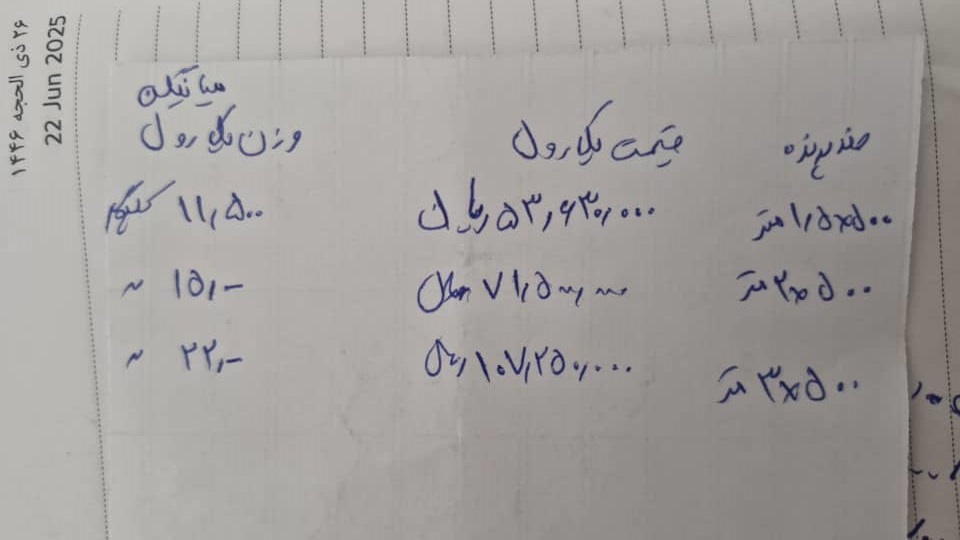 ۲۶ ذی الحجه ۱۴۴۶
22 Jun 2025
میانگین
ضد پرنده قیمت یک رول وزن یک رول
۱/۵×۵۰۰ متر ۵۳,۶۳۰,۰۰۰ ریال ۱۱,۵۰۰ کیلوگرم
۲×۵۰۰ متر ۷۱,۵۰۰,۰۰۰ ریال ۱۵,- ~
۳×۵۰۰ متر ۱۰۷,۲۵۰,۰۰۰ ریال ۲۲,- ~